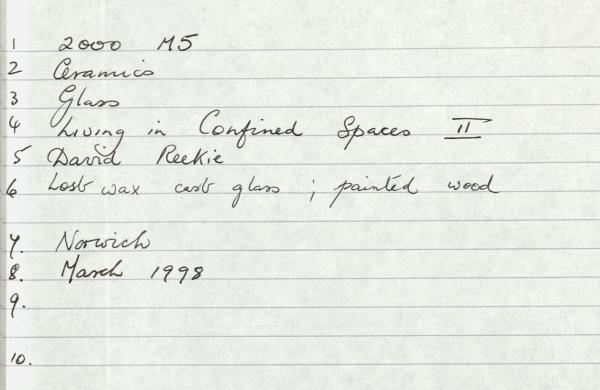 1 2000 M5
2 Ceramics
3 Glass
4 Living in Confined Spaces II
5 David Reekie
6 Lost wax cast glass ; painted wood
7. Norwich
8. March 1998
9.
10.